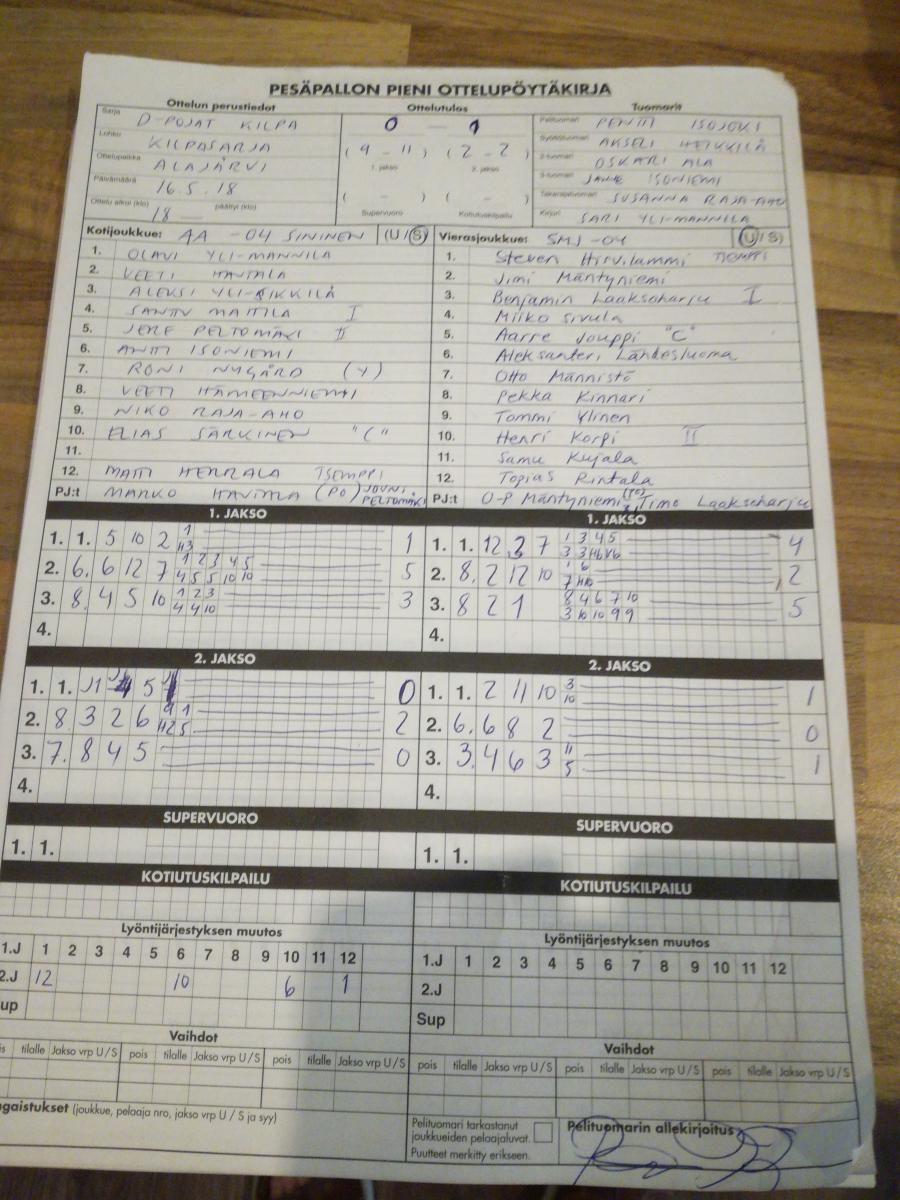 PESÄPALLON PIENI OTTELUPÖYTÄKIRJA
Ottelun perustiedot Ottelutulos Tuomarit
Sarja D-POJAT KILPA 0 - 1 Pelituomari PENTTI ISOJOKI
Lohko KILPASARJA (9 - 11) (2 - 2) Syöttötuomari AKSELI HEIKKILÄ
Ottelupaikka ALAJÄRVI 1. jakso 2. jakso 2-tuomari OSKARI ALA
Päivämäärä 16.5.18 ( - ) ( - ) 3-tuomari JANNE ISONIEMI
Ottelu alkoi (klo) 18 — päättyi (klo) Supervuoro Kotiutuskilpailu Takarajatuomari SUSANNA RAJA-AHO
Kirjuri SARI YLI-MANNILA
Kotijoukkue: AA -04 SININEN (U/S) Vierasjoukkue: SMJ -04 (U/S)
1. OLAVI YLI-MANNILA 1. Steven Hirvilammi TSEMPPI
2. VEETI HAVIALA 2. Jimi Mäntyniemi
3. ALEKSI YLI-SIKKILÄ 3. Benjamin Laaksoharju I
4. SANTU MATTILA I 4. Miiko Sivula
5. JERE PELTOMÄKI II 5. Aarre Jouppi "C"
6. ANTTI ISONIEMI 6. Aleksanteri Lähdesluoma
7. RONI NYGÅRD (Y) 7. Otto Männistö
8. VEETI HÄMEENNIEMI 8. Pekka Kinnari
9. NIKO RAJA-AHO 9. Tommi Ylinen
10. ELIAS SÄRKINEN "C" 10. Henri Korpi II
11. 11. Samu Kujala
12. MATTI HERRALA TSEMPPI 12. Topias Rintala
PJ:t MARKO HAVIALA (PO) JOUNI PELTOMÄKI PJ:t O-P Mäntyniemi (PO), Timo Laaksoharju
1. JAKSO 1. JAKSO
1. 1. 5 10 2 1 1 1. 1. 12 3 7 1 3 4 5 4
H3
2. 6. 6 12 7 1 2 3 4 5 5 2. 8. 2 12 10 1 6 2
4 5 5 10 10 7 H10
3. 8. 4 5 10 1 2 3 3 3. 8 2 1 8 4 6 7 10 5
4 4 10 3 10 10 9 9
4. 4.
2. JAKSO 2. JAKSO
1. 1. 5 0 1. 1. 2 11 10 3 1
10
2. 8 3 2 6 9 1 2 2. 6. 6 8 2 0
H2 5
3. 7. 8 4 5 0 3. 3. 4 6 3 11 1
5
4. 4.
SUPERVUORO SUPERVUORO
1. 1. 1. 1.
KOTIUTUSKILPAILU KOTIUTUSKILPAILU
Lyöntijärjestyksen muutos Lyöntijärjestyksen muutos
1.J 1 2 3 4 5 6 7 8 9 10 11 12 1.J 1 2 3 4 5 6 7 8 9 10 11 12
2.J 12 10 6 1 2.J
up Sup
Vaihdot Vaihdot
is tilalle Jakso vrp U/S pois tilalle Jakso vrp U/S pois tilalle Jakso vrp U/S pois tilalle Jakso vrp U/S pois tilalle Jakso vrp U/S pois tilalle Jakso vrp U/S
ngaistukset (joukkue, pelaaja nro, jakso vrp U / S ja syy) Pelituomari tarkastanut joukkueiden pelaajaluvat. Pelituomarin allekirjoitus
Puutteet merkitty erikseen.